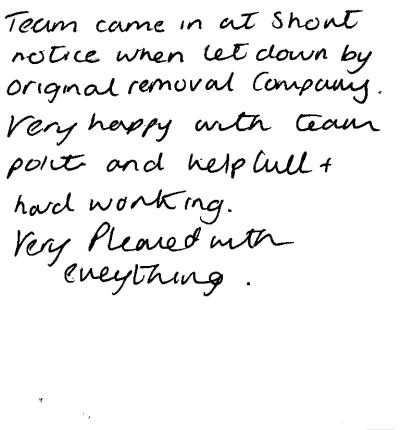 Team came in at Short
notice when let down by
original removal Company.
Very happy with team
polite and helpfull +
hard working.
Very Pleased with
eveything.